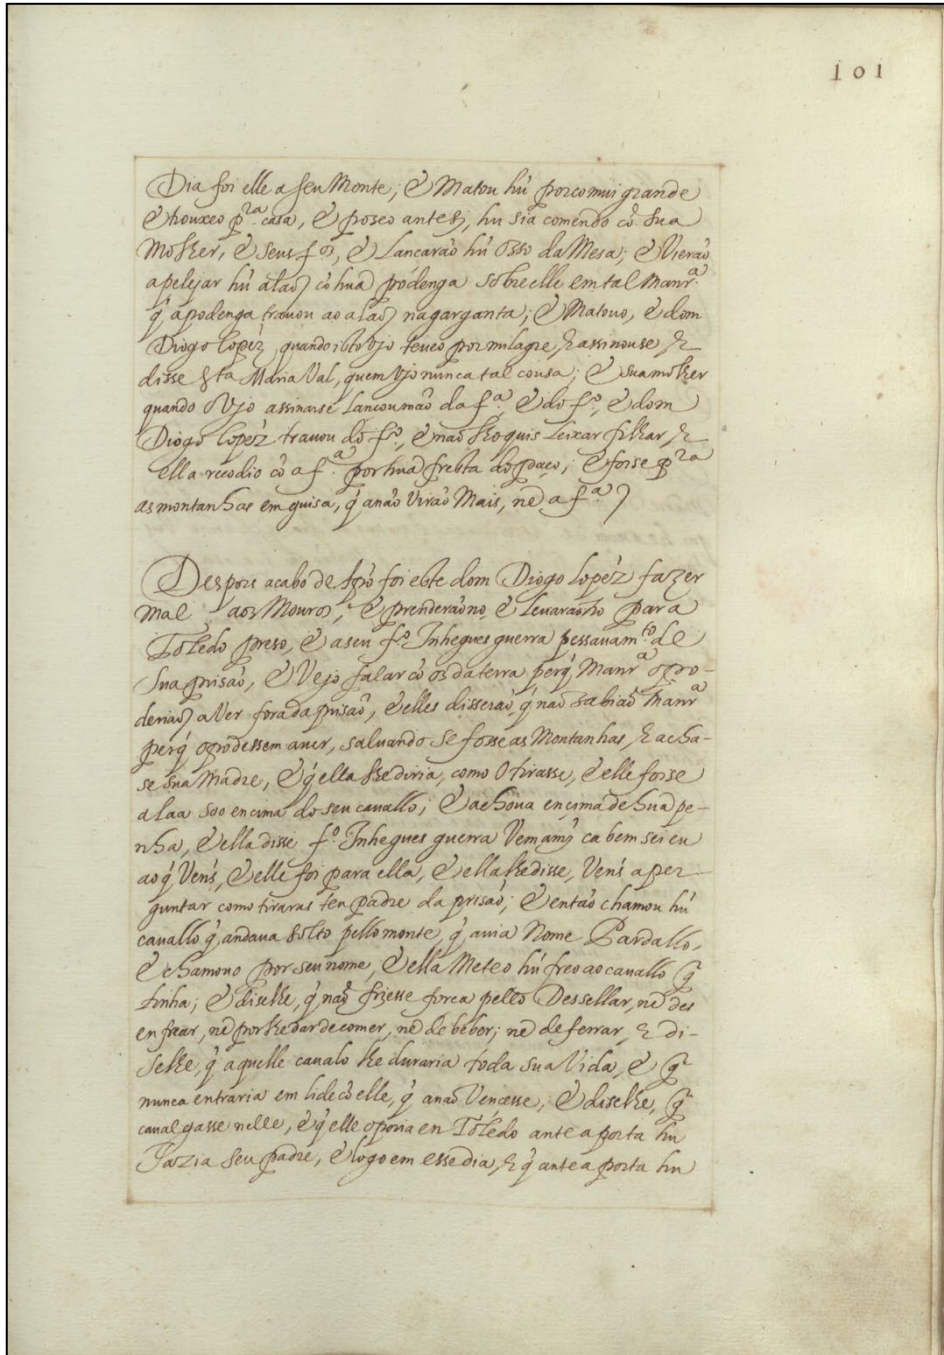 101
Dia foi elle a seu Monte; é Matou hũ porco mui grande
é trouxeo p.ra casa, é poseo antesy, hu sia comendo cõ sua
Molher, é seus f.os, é Lancarão hũ Osso da Mesa; é Vierão
apelejar hũ alão, cõ huã podenga sobre elle em tal Manr.a
q̃ a podenga trauou ao alão na garganta; é Matouo, é dom
Diogo Lopez, quando isto vjo teueo por milagre, & assinouse, &
disse Sta Maria Val, quem vjo nunca tal cousa; é sua molher
quando o vjo assinarse Lancou mão da f.a, é do f.o, é dom
Diogo Lopez trauou do f.o, é não lho quis leixar filhar, &
ella recodio cõ a f.a por huã fresta do paço; é foise p.ra
as montanhas em guisa, q̃ a não Virão Mais, nẽ a f.a
Despois acabo de tp̃o foi este dom Diogo Lopez fazer
mal aos Mouros, é prenderãono, é Leuarãono para
Tolédo preso, é a seu f.o Inhegues guerra pessauam.to de
sua prisão, é Vejo falar cõ os da terra perq̃ Manr.a o po-
derião aVer fora da prisão, é elles disserão, q̃ não sabião Manr.a
perq̃ o podessem auer, saluando se fosse as Montanhas, & acha-
se sua Madre, é q̃ ella lhe diria, como O tirasse, é elle foise
alaa soo encima do seu cauallo; é achoua encima de huã pe-
nha, é ella disse f.o Inhegues guerra Vem amỹ ca bem sei eu
ao q̃ Vens, é elle foi para ella, é ella lhe disse, Vens a per-
guntar como tiraras teu padre da prisão; é então chamou hũ
cauallo q̃ andaua solto pello monte, q̃ auia Nome Pardallo,
é chamouo por seu nome, é ella Meteo hũ freo ao cauallo q̃
tinha; é diselhe, q̃ não fizesse forca pello Dessellar, nẽ des
enfrear, nẽ por lhe dar de comer, nẽ de beber; nẽ de ferrar, & di-
selhe, q̃ aquelle caualo lhe duraria toda sua Vida, é q̃
nunca entraria em lide cõ elle, q̃ a não Vencesse; é diselhe, q̃
caualgasse nelle, é q̃ elle o poria en Tolédo ante a porta hu
Jazia seu padre, é logo em esse dia, & q̃ ante a porta hu